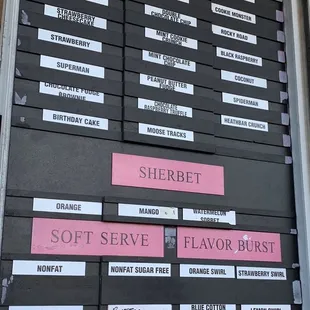 STRAWBERRY
CHEESECAKE
STRAWBERRY
SUPERMAN
CHOCOLATE FUDGE
BROWNIE
BIRTHDAY CAKE
DOUBLE
CHOCOLATE CHIP
MINT COOKIE
CRUNCH
MINT CHOCOLATE
CHIP
PEANUT BUTTER
FUDGE
CHOCOLATE
RASPBERRY TRUFFLE
MOOSE TRACKS
COOKIE MONSTER
ROCKY ROAD
BLACK RASPBERRY
COCONUT
SPIDERMAN
HEATHBAR CRUNCH
SHERBET
ORANGE
MANGO
WATERMELON
SORBET
SOFT SERVE
FLAVOR BURST
NONFAT
NONFAT SUGAR FREE
ORANGE SWIRL
STRAWBERRY SWIRL
BLUE COTTON
LEMON SWIRL